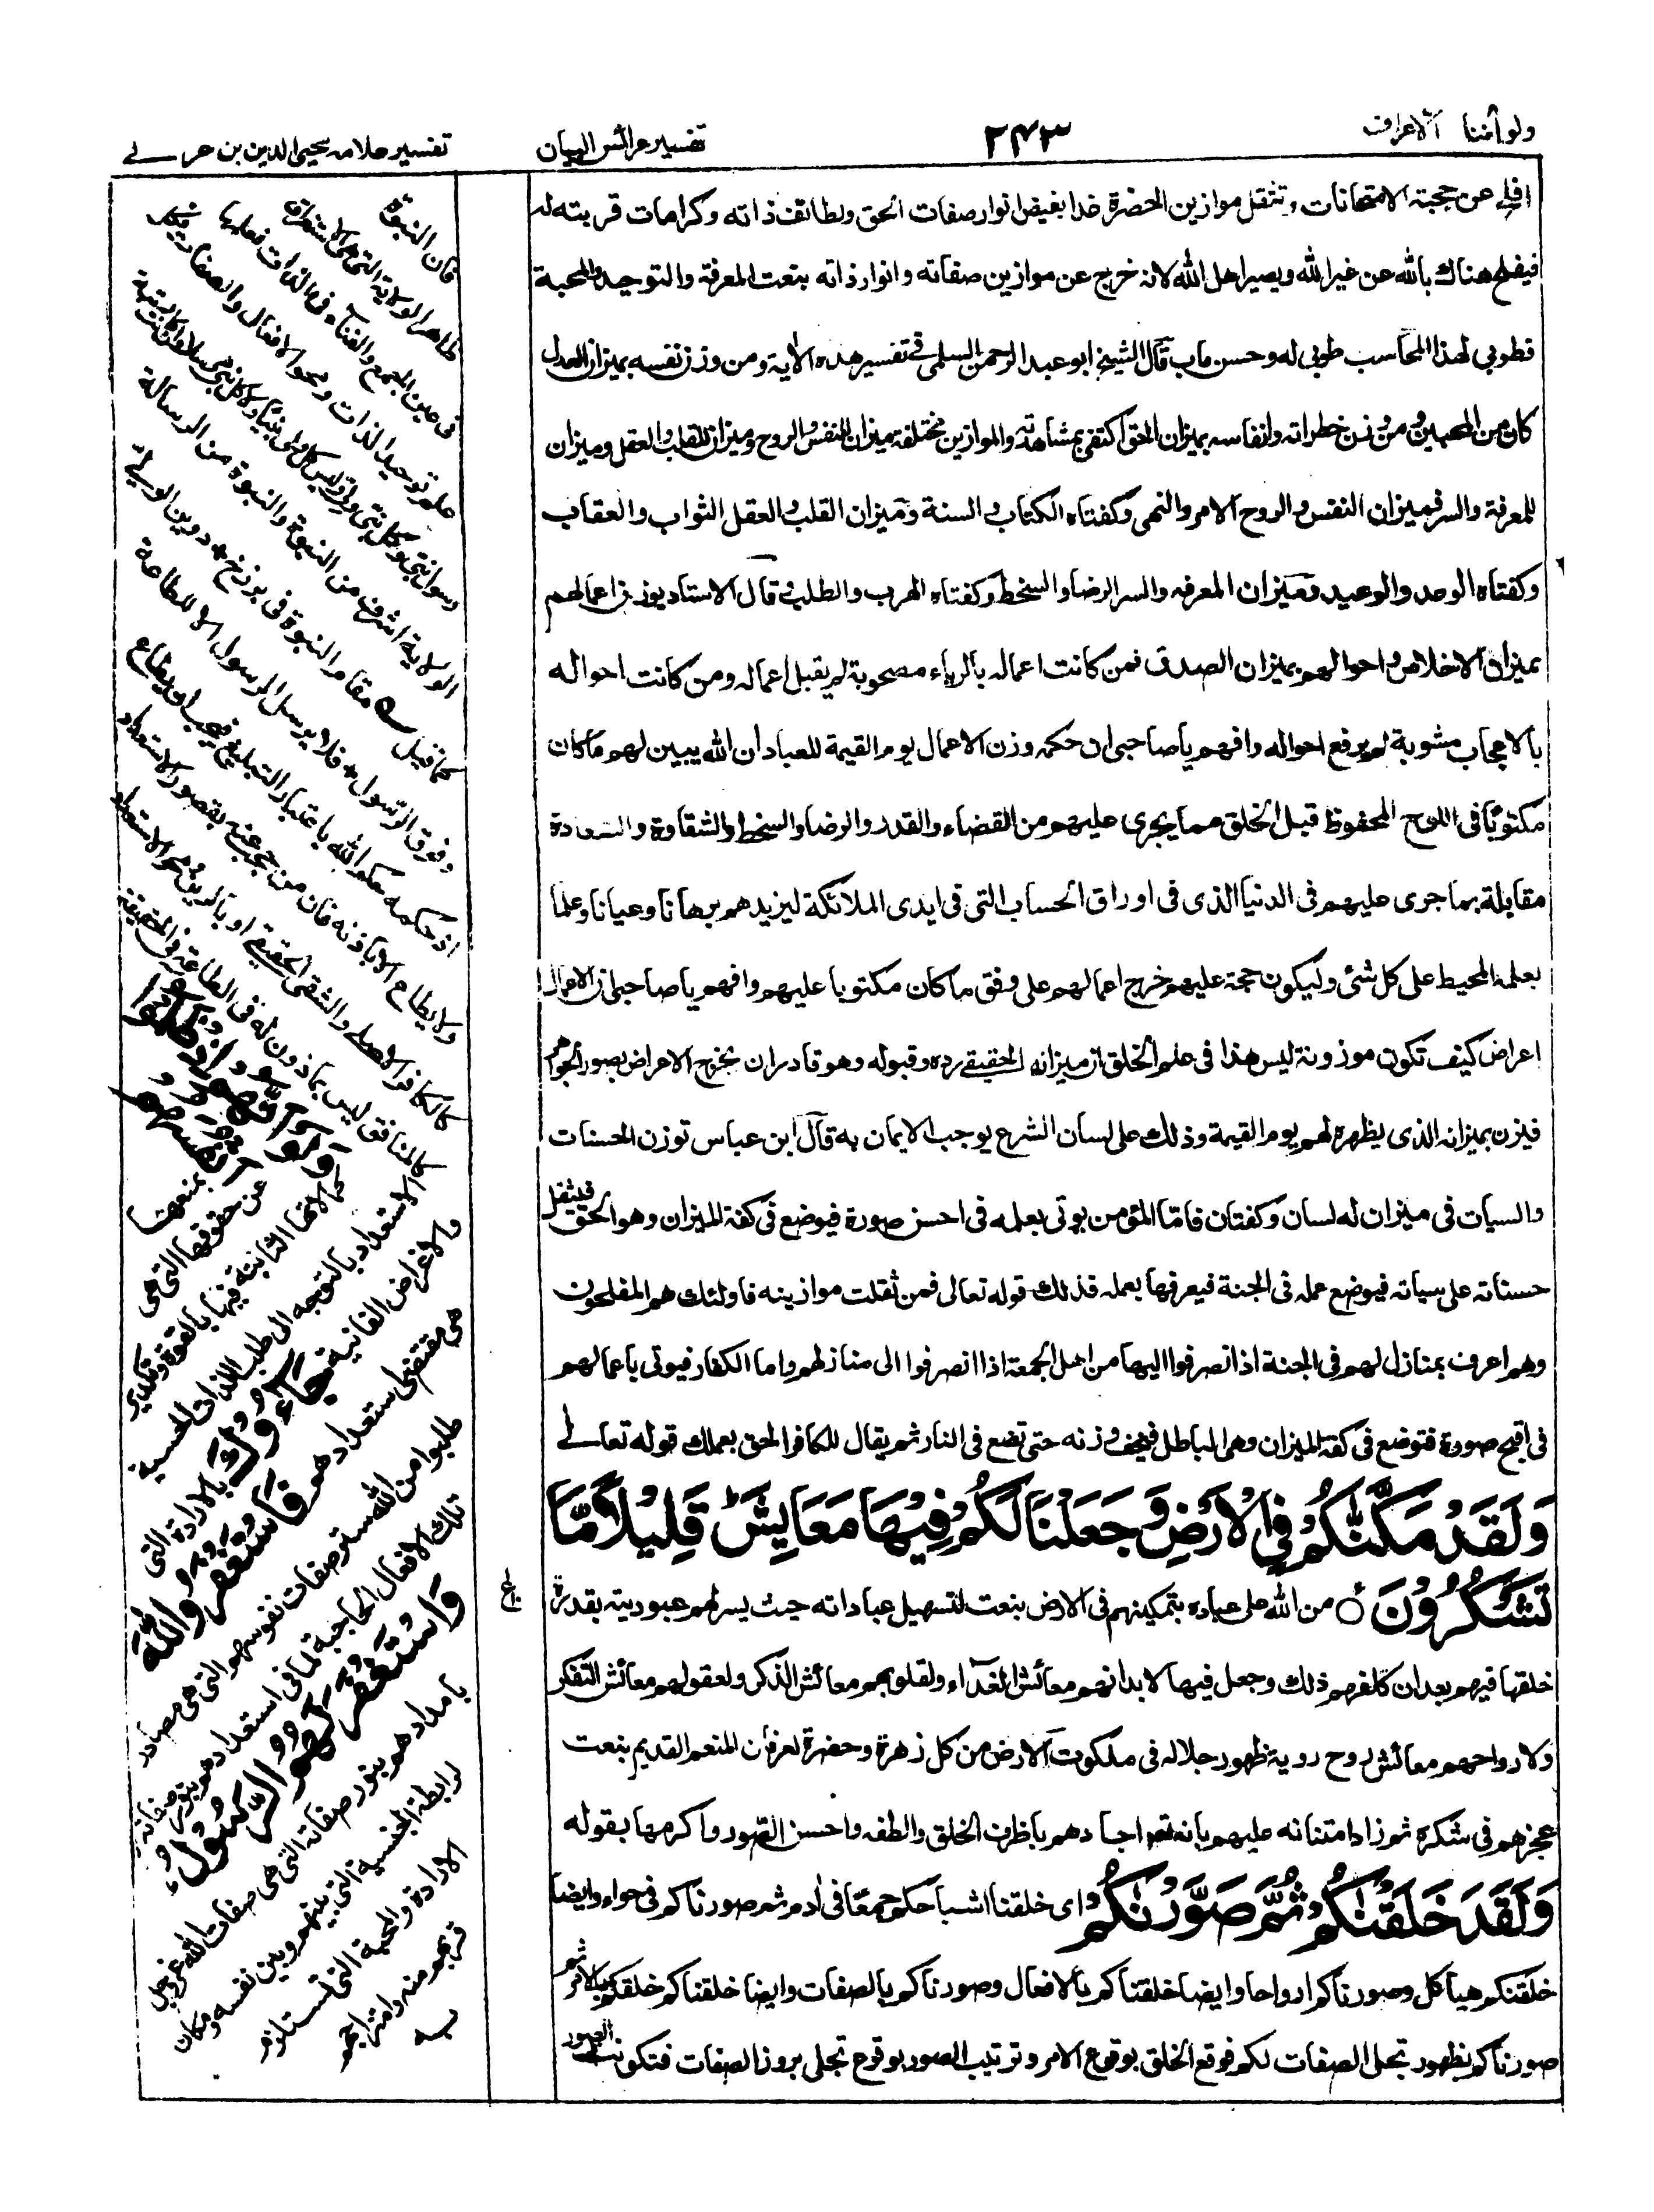 ولو أننا الاعراف
٢٤٣
تفسير عرائس البيان
تفسير علامه محيى الدين بن عربے
افلح عن حجبة الامتحانات وتثقل موازين الحضرة غدا بفيض انوار صفات الحق ولطائف ذاته وكرامات قربته له
فيفلح هناك بالله عن غير الله ويصير اهل الله لانه خرج عن موازين صفاته وانوار ذاته بنعت المعرفة والتوحيد والمحبة
فطوبى لهذا المحاسب طوبى له وحسن ماب قال الشيخ ابو عبد الرحمن السلمى فى تفسير هذه الأية ومن وزن نفسه بميزان العدل
كان من المحبين ومن وزن خطراته وانفاسه بميزان الحق اكتفى بمشاهدته والموازين مختلفة ميزان للنفس والروح وميزان للقلب والعقل وميزان
للمعرفة والسر فميزان النفس والروح الامر والنهى وكفتاه الكتاب والسنة وميزان القلب والعقل الثواب والعقاب
وكفتاه الوعد والوعيد وميزان المعرفه والسر الرضا والسخط وكفتاه الهرب والطلب قال الاستاد يوزن اعمالهم
بميزان الاخلاص واحوالهم بميزان الصدق فمن كانت اعماله بالرياء مصحوبة لم يقبل اعماله ومن كانت احواله
بالاعجاب مشوبة لم يرفع احواله وافهم ياصاحبى ان حكمه وزن الاعمال يوم القيمة للعباد ان الله يبين لهم ما كان
مكتوبًا فى اللوح المحفوظ قبل الخلق مما يجرى عليهم من القضاء والقدر والرضا والسخط والشقاوة والسعادة
مقابلة بما جرى عليهم فى الدنيا الذى فى اوراق الحساب التى فى ايدى الملائكة ليزيدهم برهانا وعيانا وعلما
بعلمه المحيط على كل شئ وليكون حجة عليهم خرج اعمالهم على وفق ما كان مكتوبا عليهم وافهم ياصاحبى ان الاعمال
اعراض كيف تكون موزونة ليس هذا فى علم الخلق ان ميزانه الحقيقے رده وقبوله وهو قادر ان يخرج الاعراض بصور الجواهر
فيزن بميزانه الذى يظهره لهم يوم القيمة وذلك على لسان الشرع يوجب الايمان به قال ابن عباس توزن الحسنات
والسيات فى ميزان له لسان وكفتان فاما المؤمن يوتى بعلمه فى احسن صورة فيوضع فى كفة الميزان وهو الحق فيثقل
حسناته على سياته فيوضع عمله فى الجنة فيعرفها بعمله فذلك قوله تعالى فمن ثقلت موازينه فاولئك هم المفلحون
وهم اعرف بمنازل لهم فى الجنة اذا نصرفوا اليها من اهل الجمعة اذا انصرفوا الى منازلهم واما الكفار فيوتى باعمالهم
فى اقبح صورة فتوضع فى كفة الميزان وهى الباطل فيخف وزنه حتى تضع فى النار ثم يقال للكافر الحق بعملك قوله تعالے
وَلَقَدْ مَكَّنّٰكُمْ فِى الْاَرْضِ وَجَعَلْنَا لَكُمْ فِيْهَا مَعَايِشَ قَلِيْلًا مَّا
تَشْكُرُوْنَ من الله على عباده بتمكينهم فى الارض بنعت لتسهيل عباداته حيث يسر لهم عبوديته بقدرة
خلقها فيهم بعد ان كلفهم ذلك وجعل فيها لابدانهم معائش الغداء ولقلوبهم معائش الذكر ولعقولهم معائش التفكر
ولارواحهم معائش لروح روية ظهور جلاله فى ملكوت الارض من كل زهرة وحضرة لعرفان المنعم القديم بنعت
عجزهم فى شكره ثم زاد امتنانه عليهم بانه اجادهم باظرف الخلق والطفه واحسن الصور واكرمها بقوله
وَلَقَدْ خَلَقْنٰكُمْ ثُمَّ صَوَّرْنٰكُمْ اى خلقنا اشباحكم جمعًا فى ادم ثم صورناكم فى حواء وايضا
خلقنكم هياكل وصورناكم ارواحا وايضا خلقناكم بالافعال وصورناكم بالصفات وايضا خلقناكم خلقكم بالامر ثم
صورناكم بظهور تجلى الصفات لكم فوقع الخلق بوقوع الامر وترتيب الصور بوقوع تجلى بروز الصفات فتكونت الصور
فان النبوة
ظاهر الولاية التى هى الاستغراق
فى عين الجمع والفناء فى الذات فعلمها
علم توحيد الذات ومحو الافعال والصفات فكل
رسول نبى وكل نبى ولى وليس كل ولى نبيا ولا كل نبى مرسلا وان كانت رتبة
الولاية اشرف من النبوة والنبوة من الرسالة
كما قيل مقام النبوة فى برزخ * دوين الولے
وفوق الرسول * فلا يرسل الرسول الا للطاعة
اذ حكمه حكم الله باعتبار التبليغ فيجب ان يطاع
ولا يطاع الا باذنه فان من حجب عنه بقصور الاستعداد
كالكافر الاصلے والشقى الحقيقے او بالرين ومحو الاستعداد
كالمنافق ليس بماذون له فى الطاعة فى الحقيقة
وَلَوْ اَنَّهُمْ اِذْ ظَّلَمُوْا
اَنْفُسَهُمْ بمنعها
عن حقوقها التى هى
كمالاتها الثابتة فيها بالقوة وتكدير
الاستعداد بالتوجه الى طلب اللذات الحسية
والاغراض الفانية جَآءُوْكَ بالارادة التى
هى مقتضى استعدادهم فَاسْتَغْفَرُوا اللهَ
طلبوا من الله ستر صفات نفوسهم التى هى مصادر
تلك الافعال الحاجبة لما فى استعدادهم بنور صفاته
وَاسْتَغْفَرَ لَهُمُ الرَّسُوْلُ
بامدادهم بنور صفاته التى هى صفات الله عز وجل
لرابطة الجنسية التى بينهم وبين نفسه ومكان
الارادة والمحبة التى تستلزم
قربهم منه وامتزاجهم
به